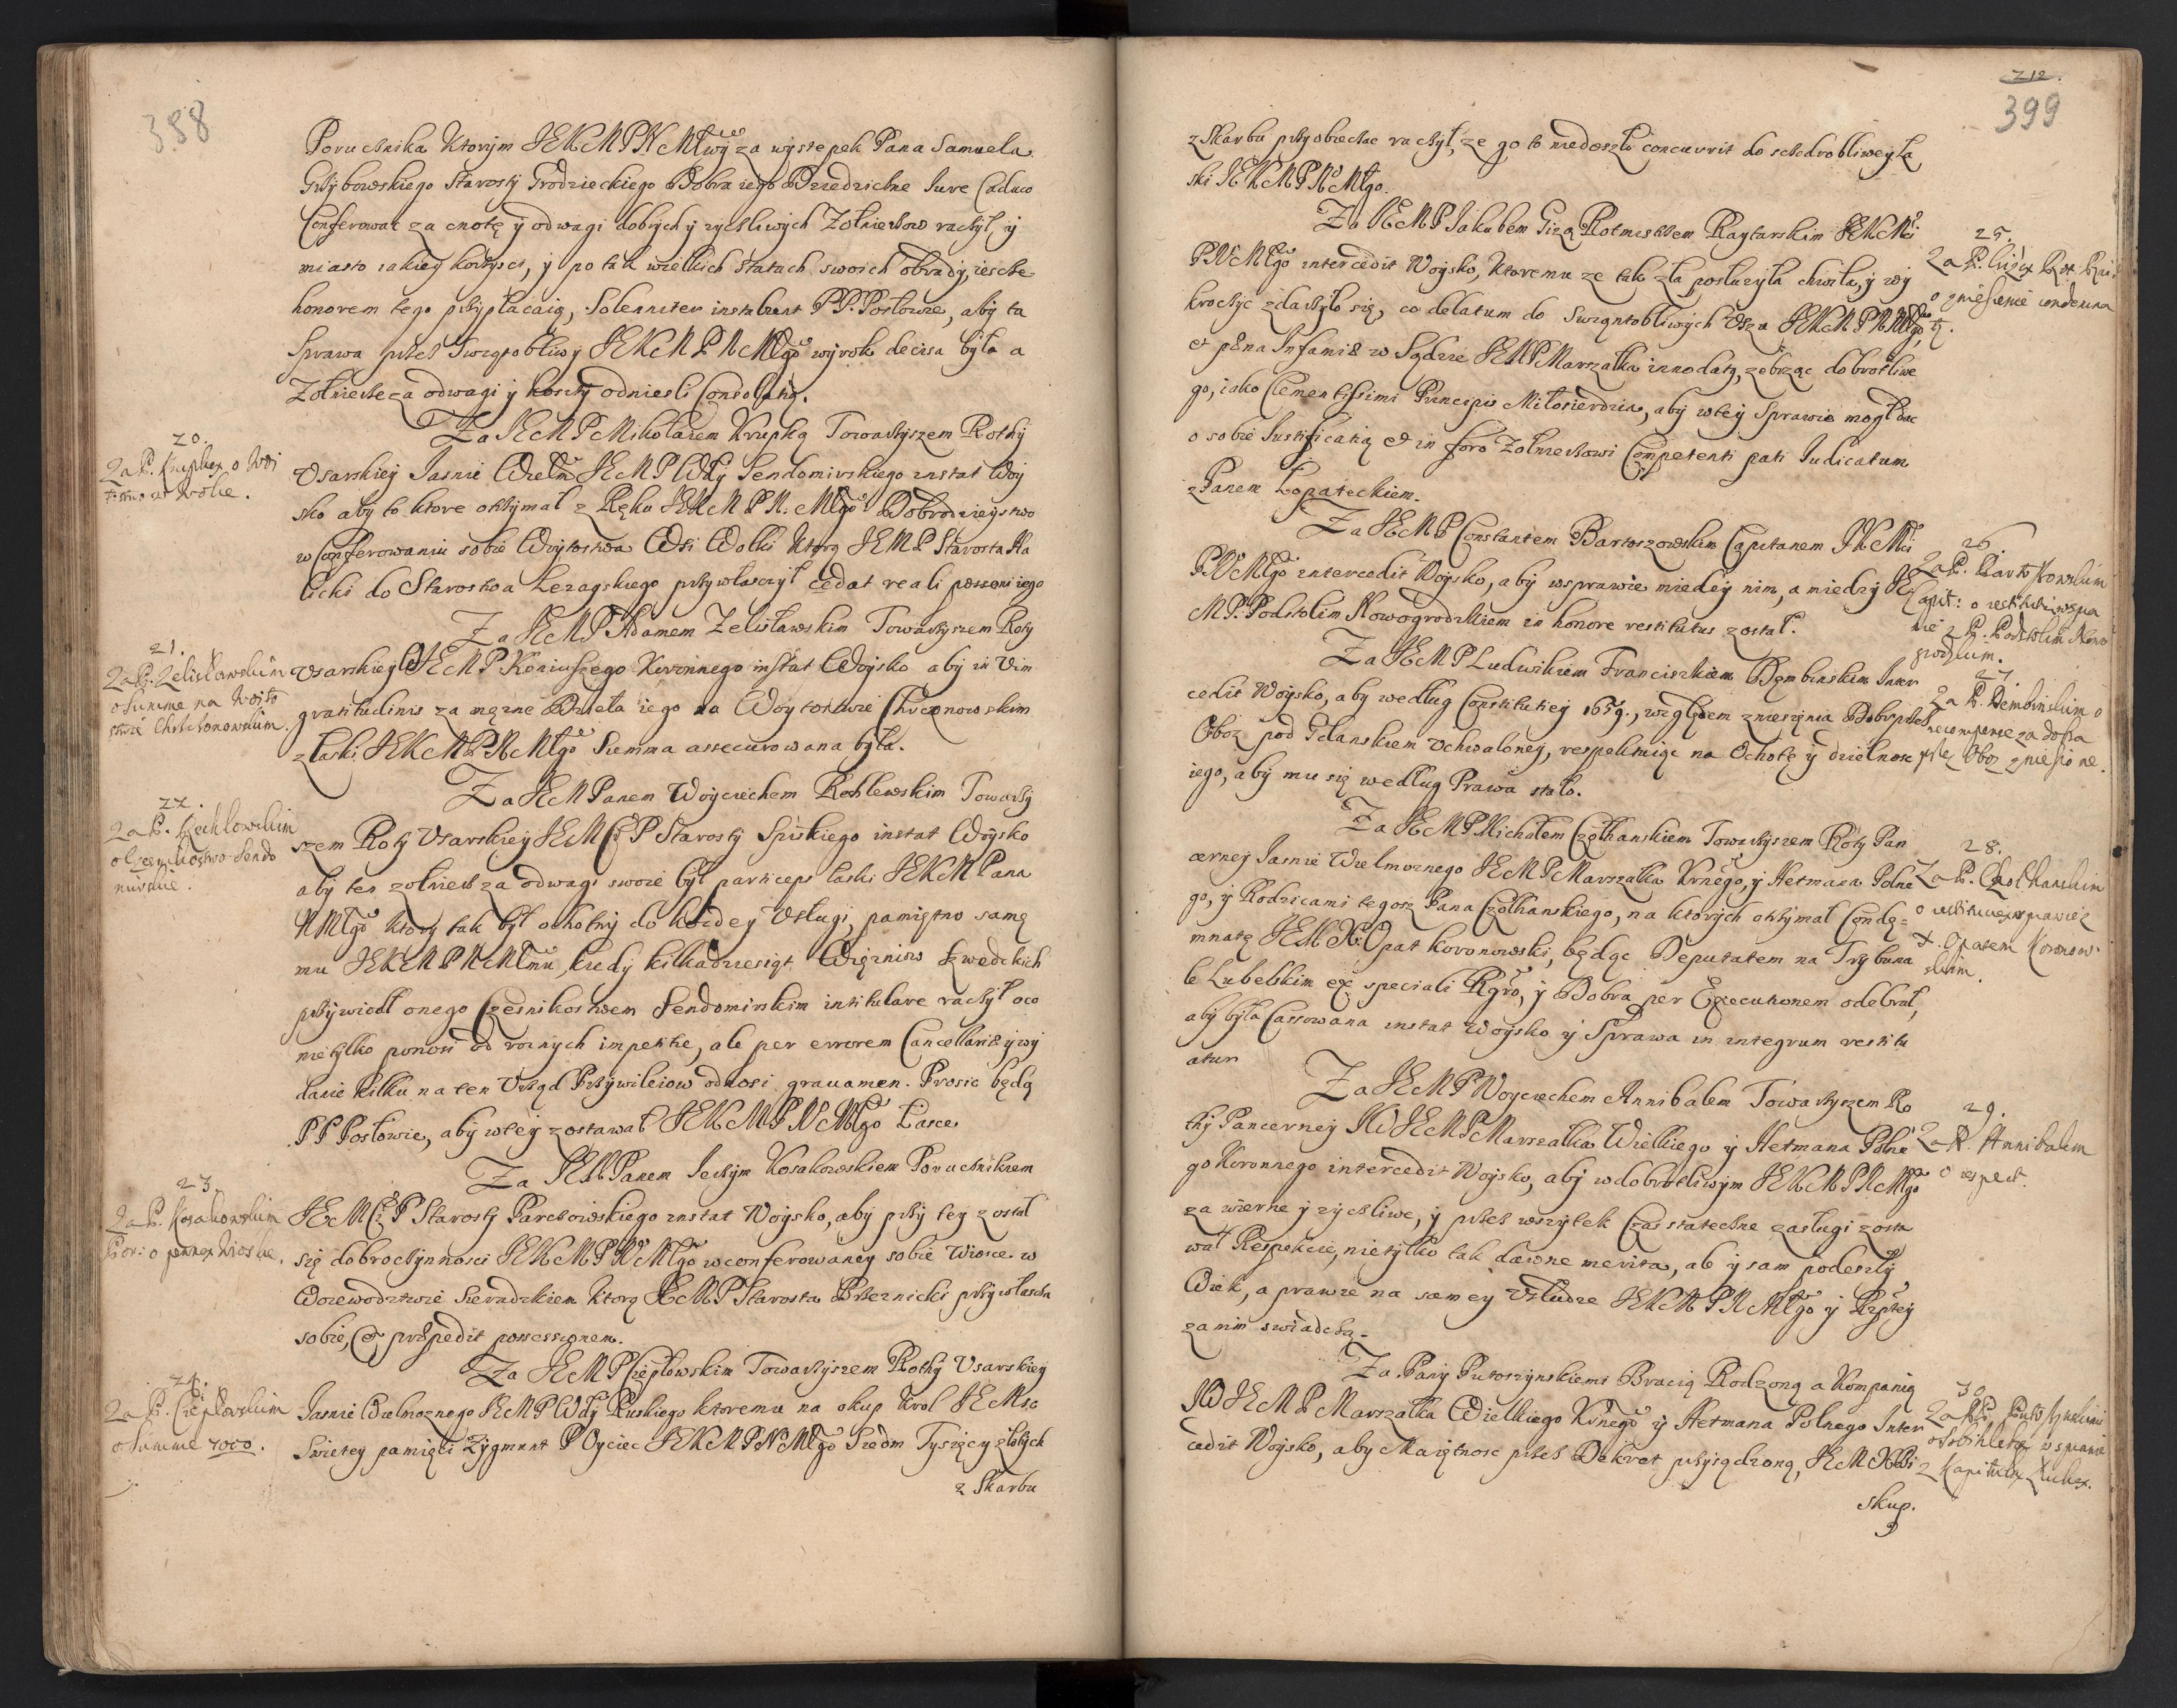 388
Porucznika Ktorym JEKM PNMłwy za występek Pana Samuela
Grzybowskiego Starosty Grodzieckiego Dobra iego Dziedziczne Jure Caduco
Conferowac za cnotę y odwagi dobrych y zyczliwych Zołnierzow raczył, y
miasto iakiey korzysci, y po tak wielkich stratach swoich obrady, ieszcze
honorem tego przypłacaią, Solenniter instabunt PP. Posłowie, aby ta
Sprawa przez Swiątobliwy JEKcM P NMłgo wyrok decisa była a
Zołnierze za odwagi y koszty odniesli Consolatią.
20.
Za P. Krupką o Woi
tostwo w Wolce.
Za JEcM P Mikołaiem Krupką Towarzyszem Rothy
Usarskiey Jasnie Wielm JEcM P Wdy Sendomirskiego instat Woy
sko aby to ktore otrzymał z Ręku JEKcM P N. Młgo Dobrodzieystwo
w Conferowaniu sobie Woytostwa Wsi Wolki ktorą JEMP Starosta Ha
licki do Starostwa Lezayskiego przywłaszczył cedat reali possesni iego
21.
Za P. Zelisławskim
o Summe na Woyto
stwie Chrzchonowskim.
Za JEcMP Adamem Zelisławskim Towarzyszem Roty
Usarskiey JEcM P. Koniuszego Koronnego instat Woysko aby in vim
gratitudinis za męzne Dzieła iego na Woytostwie Chrzonowskim
z łaski JEKcM P NcMłgo Summa assecurowana była.
22.
Za P. Rechlowskim
o Czesnikostwo Sendo
mirskie.
Za JEcM Panem Woyciechem Rohlewskim Towarzy
szem Roty Usarskiey JEMCi P Starosty Spiskiego instat Woysko
aby ten zołnierz za odwagi swoie był particeps łaski JEKcM Pana
NMłgo ktory tak był ochotny do kozdey Usługi, pamiętno samę
mu JEKcM P NcMłmu kiedy kilkadziesiąt Więzniow Szwedzkich
przywiodł onego Czesnikostwem Sendomirskim intitulare raczył oco
nietylko ponosi od roznych impetitie, ale per errorem Cancellariæ y wy
danie kilku na ten Urząd Przywileiow odnosi grauamen. Prosic będą
PP Posłowie, aby w tey zostawał JEKcM P NcMłgo Łasce
23.
Za P. Kosakowskim
Por: o pewną Wioskę.
Za JEM Panem Jerzym Kosakowskiem Porucznikiem
JEcM Ci P Starosty Parczowskiego instat Woysko, aby przy tey został
się dobroczynnosci JEKcM P NcMłgo w conferowaney sobie Wiosce w
Woiewodztwie Sieradzkiem ktorą JEcMP Starosta Brzeznicki przywłaszcza
sobie, & præpedit possessionem.
24.
Za P. Ciepłowskim
o Summe 7000.
Za JEcM P Ciepłowskim Towarzyszem Rothy Usarskiey
Jasnie Wielmoznego JEcM P Wdy Ruskiego ktoremu na okup Krol JEcMsc
Swietey pamięci Zygmunt P Oyciec JEKcM P NcMłgo Siedm Tysięcy złotych
z Skarbu
212.
399
z Skarbu przyobiecac raczył, ze go to niedoszło concurrit do sczedrobliwey ła
ski JEKcM P NcMłgo.
25.
Za P. Gizą Rot. Rait
o zniesienie condemna
ty.
Za JEcM P Jakubem Gizą Rotmistrzem Raytarskim JEKcMci
PNcMłgo intercedit Woysko, ktoremu ze tak zła posłuzyła chwila, y wy
kroczyc zdarzyło się, co delatum do Swiąntobliwych Uszu JEKcM P NMłgo,
et pæna Infamiæ w Sądzie JEMP Marszałka innodatą, zebrząc dobrotliwe
go, iako Clementissimi Principis Miłosierdzia, aby wtey Sprawie mogł dac
o sobie Justificatią et in foro Zołnierzowi Competenti pati Judicatum
z Panem Łopateckiem.
26
Za P. Bartoszowskim
Capit: o restitutią wspra
wie z P. Podstolim Nowo
grodzkim.
Za JEcM P Constantem Bartoszowskim Capitanem JKcMci
P.NcMłgo intercedit Woysko, aby wsprawie miedzy nim, a miedzy JE
MP. Podstolim Nowogrodzkiem in honore restitutus został.
27
Za P. Dembinskim o
recompense za dobra
przez Oboz zniesione.
Za JEcM P Ludwikiem Franciszkiem Dembinskim Inter
cedit Woysko, aby według Constitutiey 1659., względem zniesienia Dobr przez
Oboz pod Gdanskiem uchwaloney, respektuiąc na Ochotę y dzielnosc
iego, aby mu się według Prawa stało.
28.
Za P. Czołhanskim
o restitucią w sprawie z
X. Opatem Koronow
skim.
Za JEcM P Michałem Czołhanskiem Towarzyszem Roty Pan
cerney Jasnie Wielmoznego JEcM P Marszałka Krnego, y Hetmana Polne
go, y Rodzicami tegosz Pana Czołhanskiego, na ktorych otrzymał Conde=
mnatę JEM X. Opat Koronowski, będąc Deputatem na Trybuna
le Lubelskim ex speciali Rgro, y Dobra per Executionem odebrał,
aby była Cassowana instat Woysko y Sprawa in integrum restitu
atur
29.
Za P. Annibalem
o respect.
Za JEcM P Woyciechem Annibalem Towarzyszem Ro
thy Pancerney JW JEcM P Marszałka Wielkiego y Hetmana Polne
go Koronnego intercedit Woysko, aby w dobrotliwym JEKcM P NcMłgo
za wierne y zyczliwe, y przez wszytek Czas stateczne zasługi zosta
wał Respekcie, nietylko tak dawne merita, ale y sam podeszły
Wiek, a prawie na samey Usłudze JEKcM P NcMłgo y Rzptey
za nim swiadczą.
30.
Za PP. Putoszynskimi
w sprawie
z Kapitułą Łucką.
Za Pany Putoszynskiemi Bracią Rodzoną a Kompanią
JW JEcM P Marszałka Wielkiego Krnego y Hetmana Polnego Inter
cedit Woysko, aby Maiętnosc przez Dekret przysądzoną, JEcM X Bi
skup.